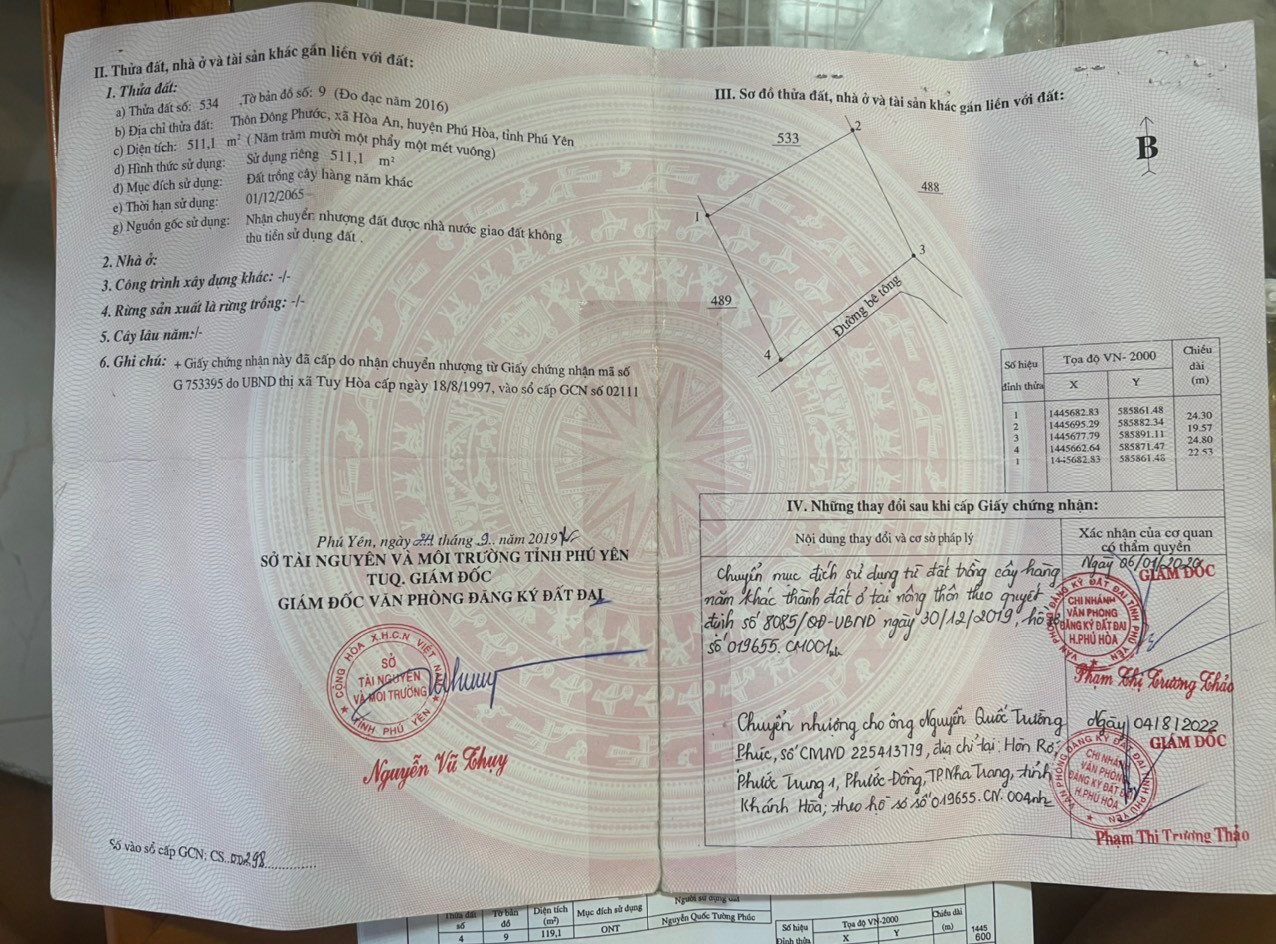 II. Thửa đất, nhà ở và tài sản khác gắn liền với đất:
1. Thửa đất:
a) Thửa đất số: 534 ,Tờ bản đồ số: 9 (Đo đạc năm 2016)
b) Địa chỉ thửa đất: Thôn Đông Phước, xã Hòa An, huyện Phú Hòa, tỉnh Phú Yên
c) Diện tích: 511,1 m² ( Năm trăm mười một phẩy một mét vuông)
d) Hình thức sử dụng: Sử dụng riêng 511,1 m²
đ) Mục đích sử dụng: Đất trồng cây hàng năm khác
e) Thời hạn sử dụng: 01/12/2065
g) Nguồn gốc sử dụng: Nhận chuyển nhượng đất được nhà nước giao đất không
thu tiền sử dụng đất .
2. Nhà ở:
3. Công trình xây dựng khác: -/-
4. Rừng sản xuất là rừng trồng: -/-
5. Cây lâu năm:/-
6. Ghi chú: + Giấy chứng nhận này đã cấp do nhận chuyển nhượng từ Giấy chứng nhận mã số
G 753395 do UBND thị xã Tuy Hòa cấp ngày 18/8/1997, vào sổ cấp GCN số 02111
Phú Yên, ngày 24 tháng .9.. năm 2019
SỞ TÀI NGUYÊN VÀ MÔI TRƯỜNG TỈNH PHÚ YÊN
TUQ. GIÁM ĐỐC
GIÁM ĐỐC VĂN PHÒNG ĐĂNG KÝ ĐẤT ĐAI
CỘNG HÒA X.H.C.N VIỆT NAM
SỞ
TÀI NGUYÊN
VÀ MÔI TRƯỜNG
TỈNH PHÚ YÊN
Nguyễn Vũ Thụy
Số vào sổ cấp GCN: CS..00298
III. Sơ đồ thửa đất, nhà ở và tài sản khác gắn liền với đất:
533
2
B
488
1
3
489
Đường bê tông
4
Số hiệu đỉnh thửa Tọa độ VN- 2000 Chiều dài (m)
X Y
1 1445682.83 585861.48
24.30
2 1445695.29 585882.34
19.57
3 1445677.79 585891.11
24.80
4 1445662.64 585871.47
22.53
1 1445682.83 585861.48
IV. Những thay đổi sau khi cấp Giấy chứng nhận:
Nội dung thay đổi và cơ sở pháp lý
Xác nhận của cơ quan
có thẩm quyền
Chuyển mục đích sử dụng từ đất trồng cây hàng
năm khác thành đất ở tại nông thôn theo quyết
định số 8085/QĐ-UBND ngày 30/12/2019, hồ sơ
số 019655.CM001
Ngày 06/01/2020
GIÁM ĐỐC
VĂN PHÒNG ĐĂNG KÝ ĐẤT ĐAI TỈNH PHÚ YÊN
CHI NHÁNH
VĂN PHÒNG
ĐĂNG KÝ ĐẤT ĐAI
H.PHÚ HÒA
Phạm Thị Trương Thảo
Chuyển nhượng cho ông Nguyễn Quốc Trường
Phúc, số CMND 225413779, địa chỉ tại: Hòn Rớ,
Phước Trung 1, Phước Đồng, TP Nha Trang, tỉnh
Khánh Hòa; theo hồ sơ số 019655.CN.004
Ngày 04/8/2022
GIÁM ĐỐC
VĂN PHÒNG ĐĂNG KÝ ĐẤT ĐAI TỈNH PHÚ YÊN
CHI NHÁNH
VĂN PHÒNG
ĐĂNG KÝ ĐẤT ĐAI
H.PHÚ HÒA
Phạm Thị Trương Thảo
Thửa đất số Tờ bản đồ Diện tích (m²) Mục đích sử dụng Người sử dụng đất
4 9 119,1 ONT Nguyễn Quốc Tường Phúc
Số hiệu Đỉnh thửa Tọa độ VN-2000 Chiều dài (m)
X Y
1445
600